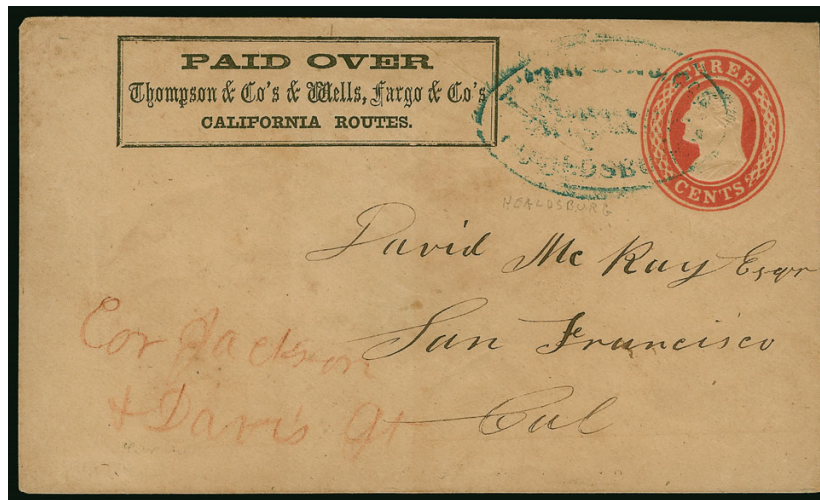 PAID OVER
Thompson & Co's & Wells, Fargo & Co's
CALIFORNIA ROUTES.
THREE
CENTS
HEALDSBURG
David McKay Esqr
San Francisco
Cal
Cor Jackson
& Davis St